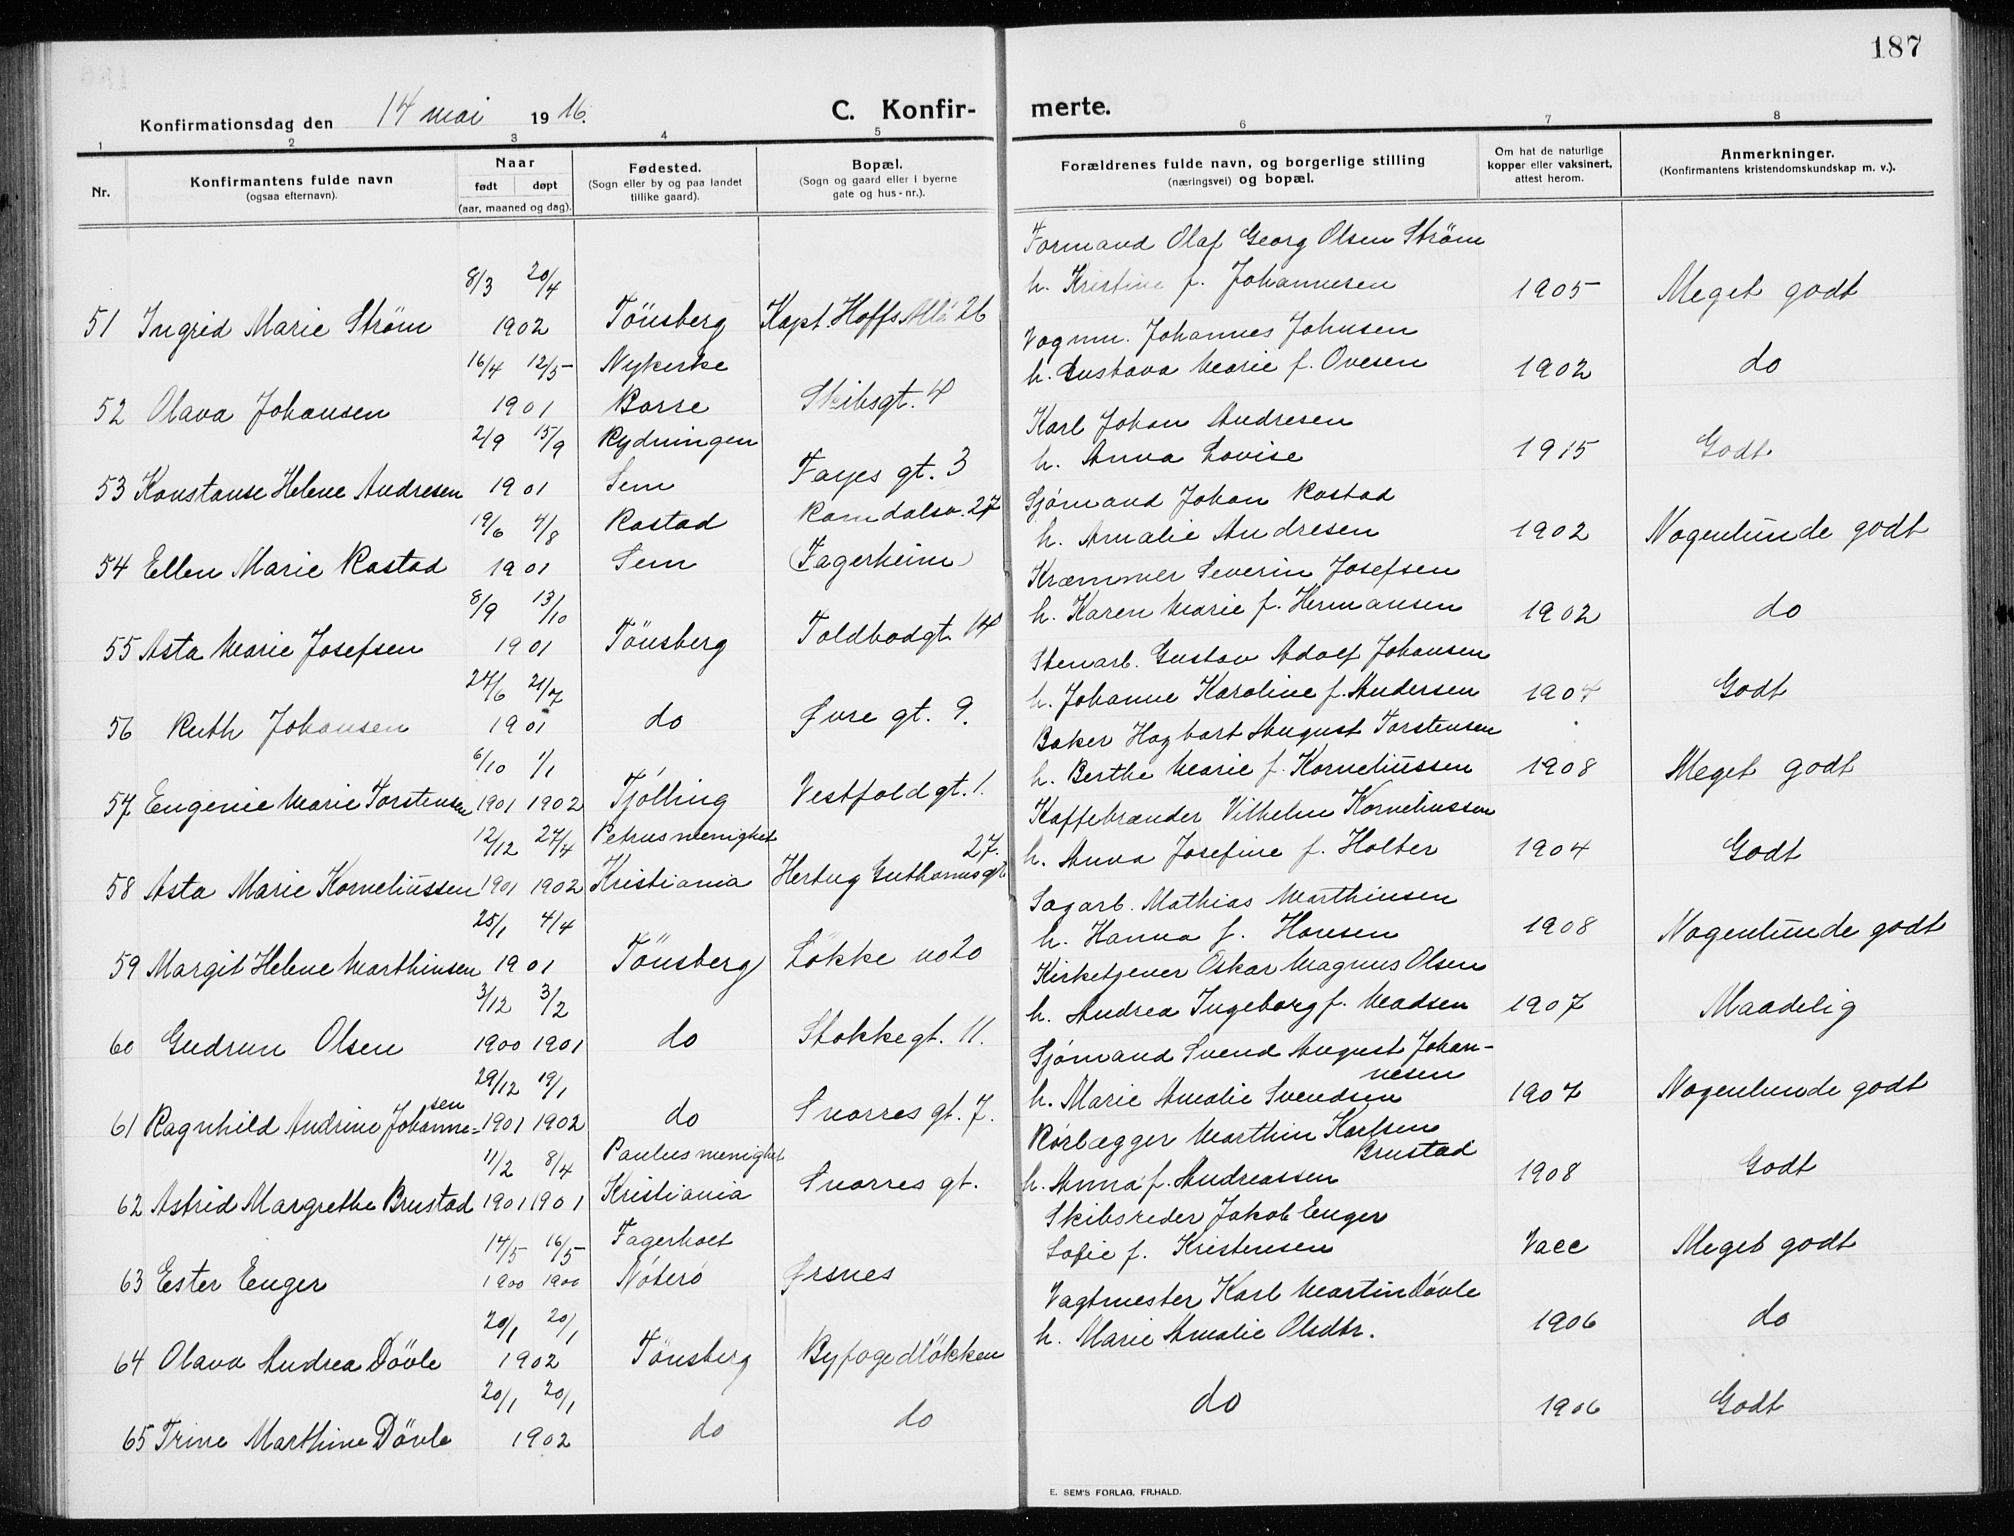 187
Konfirmationsdag den 14 mai 1916. C. Konfirmerte.
1 2 3 4 5 6 7 8
Nr. Konfirmantens fulde navn (ogsaa efternavn). Naar født døpt (aar, maaned og dag). Fødested. (Sogn eller by og paa landet tillike gaard). Bopæl. (Sogn og gaard eller i byerne gate og hus-nr.). Forældrenes fulde navn, og borgerlige stilling (næringsvei) og bopæl. Om hat de naturlige kopper eller vaksinert, attest herom. Anmerkninger. (Konfirmantens kristendomskundskap m. v.).
Formand Olaf Georg Olsen Strøm
8/3 20/4 h. Kristine f. Johannesen 1905 Meget godt
51 Ingrid Marie Strøm 1902 Tönsberg Kapt. Hoffs Allé 26
Vognm. Johannes Johnsen
16/4 12/5 Nykerke h. Gustava Marie f. Ovesen 1902 do
52 Olava Johansen 1901 Borre Skibsgt. 4
Karl Johan Andresen
2/9 15/9 Rydningen h. Anna Lovise 1915 Godt
53 Konstanse Helene Andresen 1901 Sem Fayes gt. 3
Sjømand Johan Rostad
19/6 4/8 Rostad Ramdalsv. 27 h. Amalie Andresen 1902 Nogenlunde godt
54 Ellen Marie Rostad 1901 Sem (Fagerheim)
Kræmmer Severin Josefsen
8/9 13/10 h. Karen Marie f. Hermansen 1902 do
55 Asta Marie Josefsen 1901 Tönsberg Toldbodgt. 14
Stenarb. Gustav Adolf Johansen
24/6 21/7 h. Johanne Karoline f. Andersen 1904 Godt
56 Ruth Johansen 1901 do Øvre gt. 9.
Baker Hagbart August Torstensen
6/10 1/1 h. Berthe Marie f. Korneliussen 1908 Meget godt
57 Eugenie Marie Torstensen 1901 1902 Tjölling Vestfoldgt. 1.
Kaffebrænder Vilhelm Korneliussen
12/12 27/4 Petrus menighet 27. h. Anna Josefine f. Holter 1904 Godt
58 Asta Marie Korneliussen 1901 1902 Kristiania Hertug Guthormsgt
Sagarb. Mathias Marthinsen
25/1 4/4 h. Hanna f. Hansen 1908 Nogenlunde godt
59 Margit Helene Marthinsen 1901 Tönsberg Løkke no 20
Kirketjener Oskar Magnus Olsen
3/12 3/2 h. Andrea Ingeborg f. Madsen 1907 Maadelig
60 Gudrun Olsen 1900 1901 do Stokkegt. 11.
Sjömand Svend August Johannesen
29/12 19/1 h. Marie Amalie Svendsen 1907 Nogenlunde godt
61 Ragnhild Andrine Johannesen 1901 1902 do Snorres gt. 7.
Rörlægger Marthin Karlsen Brustad
11/2 8/4 Paulus menighet h. Anna f. Andreassen 1908 Godt
62 Astrid Margrethe Brustad 1901 1901 Kristiania Snorres gt.
Skibsreder Jakob Enger
14/5 16/5 Fagerholt Sofie f. Kristensen Vacc Meget godt
63 Ester Enger 1900 1900 Nöterö Ørsnes
Vagtmester Karl Martin Dövle
20/1 20/1 h. Marie Amalie Olsdtr. 1906 do
64 Olava Andrea Dövle 1902 Tönsberg Byfogedløkken
20/1 20/1 do 1906 Godt
65 Trine Marthine Dövle 1902 do do
E. SEM'S FORLAG, FR.HALD.